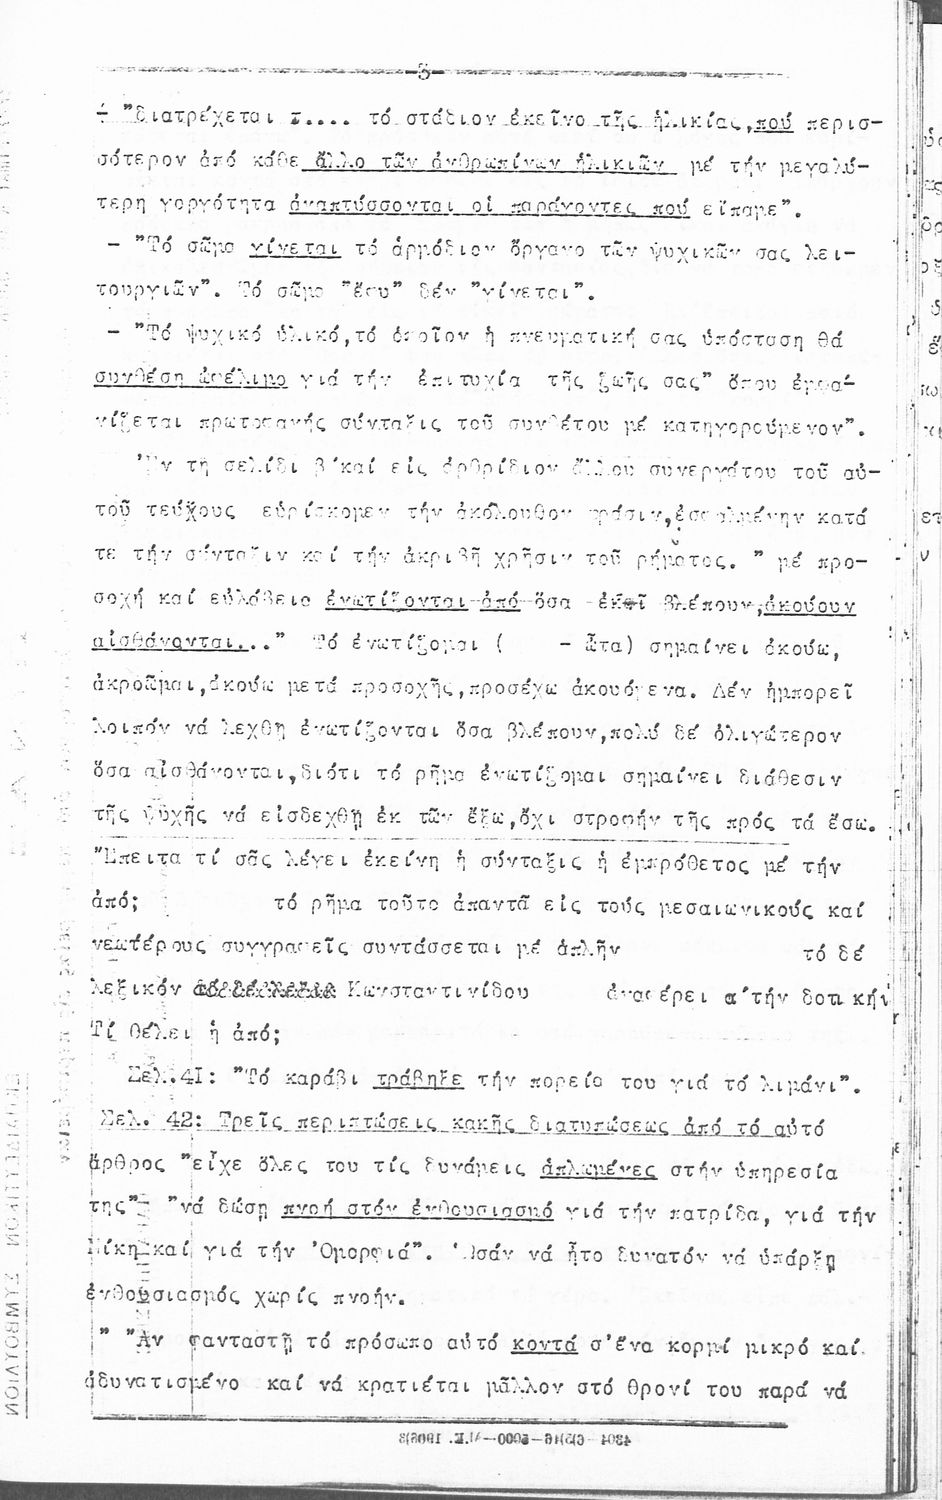 -5-
- "διατρέχεται τ.... τό στάδιον ἐκεῖνο τῆς ἡλικίας,πού περισ-
σότερον ἀπό κάθε ἄλλο τῶν ἀνθρωπίνων ἡλικιῶν μέ τήν μεγαλύ-
τερη γοργότητα ἀναπτύσσονται οἱ παράγοντες πού εἴπαμε".
- "Τό σῶμα γίνεται τό ἁρμόδιον ὄργανο τῶν ψυχικῶν σας λει-
τουργιῶν". Τό σῶμα "ἔσυ" δέν "γίνεται".
- "Τό ψυχικό ὑλικό,τό ὁποῖον ἡ πνευματική σας ὑπόσταση θά
συνθέση ὠφέλιμο γιά τήν ἐπιτυχία τῆς ζωῆς σας" ὅπου ἐμφα-
νίζεται πρωτοφανής σύνταξις τοῦ συνθέτου μέ κατηγορούμενον".
Ἐν τῇ σελίδι β΄καί εἰς ἀρθρίδιον ἄλλου συνεργάτου τοῦ αὐ-
τοῦ τεύχους εὑρίσκομεν τήν ἀκόλουθον φράσιν,ἐσφαλμένην κατά
τε τήν σύνταξιν καί τήν ἀκριβῆ χρῆσιν τοῦ ρήματος. " μέ προ-
σοχή καί εὐλάβεια ἐνωτίζονται ἀπό ὅσα ἐκεῖ βλέπουν,ἀκούουν
αἰσθάνονται..." Τό ἐνωτίζομαι ( - ὦτα) σημαίνει ἀκούω,
ἀκροῶμαι,ἀκούω μετά προσοχῆς,προσέχω ἀκουόμενα. Δέν ἠμπορεῖ
λοιπόν νά λεχθῆ ἐνωτίζονται ὅσα βλέπουν,πολύ δέ ὀλιγώτερον
ὅσα αἰσθάνονται,διότι τό ρῆμα ἐνωτίζομαι σημαίνει διάθεσιν
τῆς ψυχῆς νά εἰσδεχθῇ ἐκ τῶν ἔξω,ὄχι στροφήν τῆς πρός τά ἔσω.
Ἔπειτα τί σᾶς λέγει ἐκείνη ἡ σύνταξις ἡ ἐμπρόθετος μέ τήν
ἀπό; τό ρῆμα τοῦτο ἀπαντᾶ εἰς τούς μεσαιωνικούς καί
νεωτέρους συγγραφεῖς συντάσσεται μέ ἁπλῆν τό δέ
λεξικόν Κωνσταντινίδου ἀναφέρει α΄τήν δοτικήν
Τί θέλει ἡ ἀπό;
Σελ.4Ι: "Τό καράβι τράβηξε τήν πορεία του γιά τό λιμάνι".
Σελ. 42: Τρεῖς περιπτώσεις κακῆς διατυπώσεως ἀπό τό αὐτό
ἄρθρος "εἶχε ὅλες του τίς δυνάμεις ἁπλωμένες στήν ὑπηρεσία
της"- "νά δώσῃ πνοή στόν ἐνθουσιασμό γιά τήν πατρίδα, γιά τήν
Νίκη καί γιά τήν Ὀμορφιά". Ὡσάν νά ἦτο δυνατόν νά ὑπάρξῃ
ἐνθουσιασμός χωρίς πνοήν.
" "Ἄν φανταστῇ τό πρόσωπο αὐτό κοντά σ'ἕνα κορμί μικρό καί
ἀδυνατισμένο καί νά κρατιέται μᾶλλον στό θρονί του παρά νά